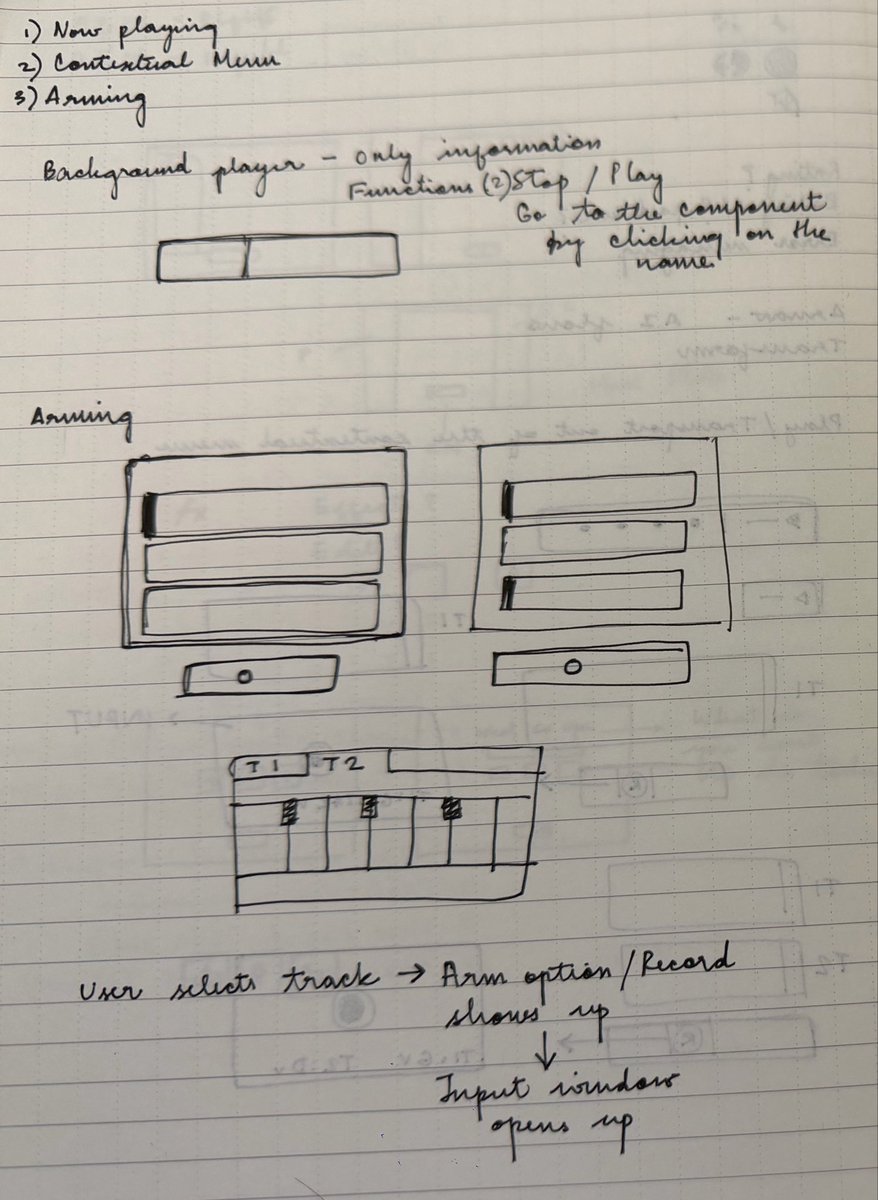 1) Now playing
2) Contextual Menu
3) Arming
Background player - only information
Functions (2) Stop / Play
Go to the component
by clicking on the
name
Arming
T1 T2
User selects track → Arm option / Record
shows up
↓
Input window
opens up